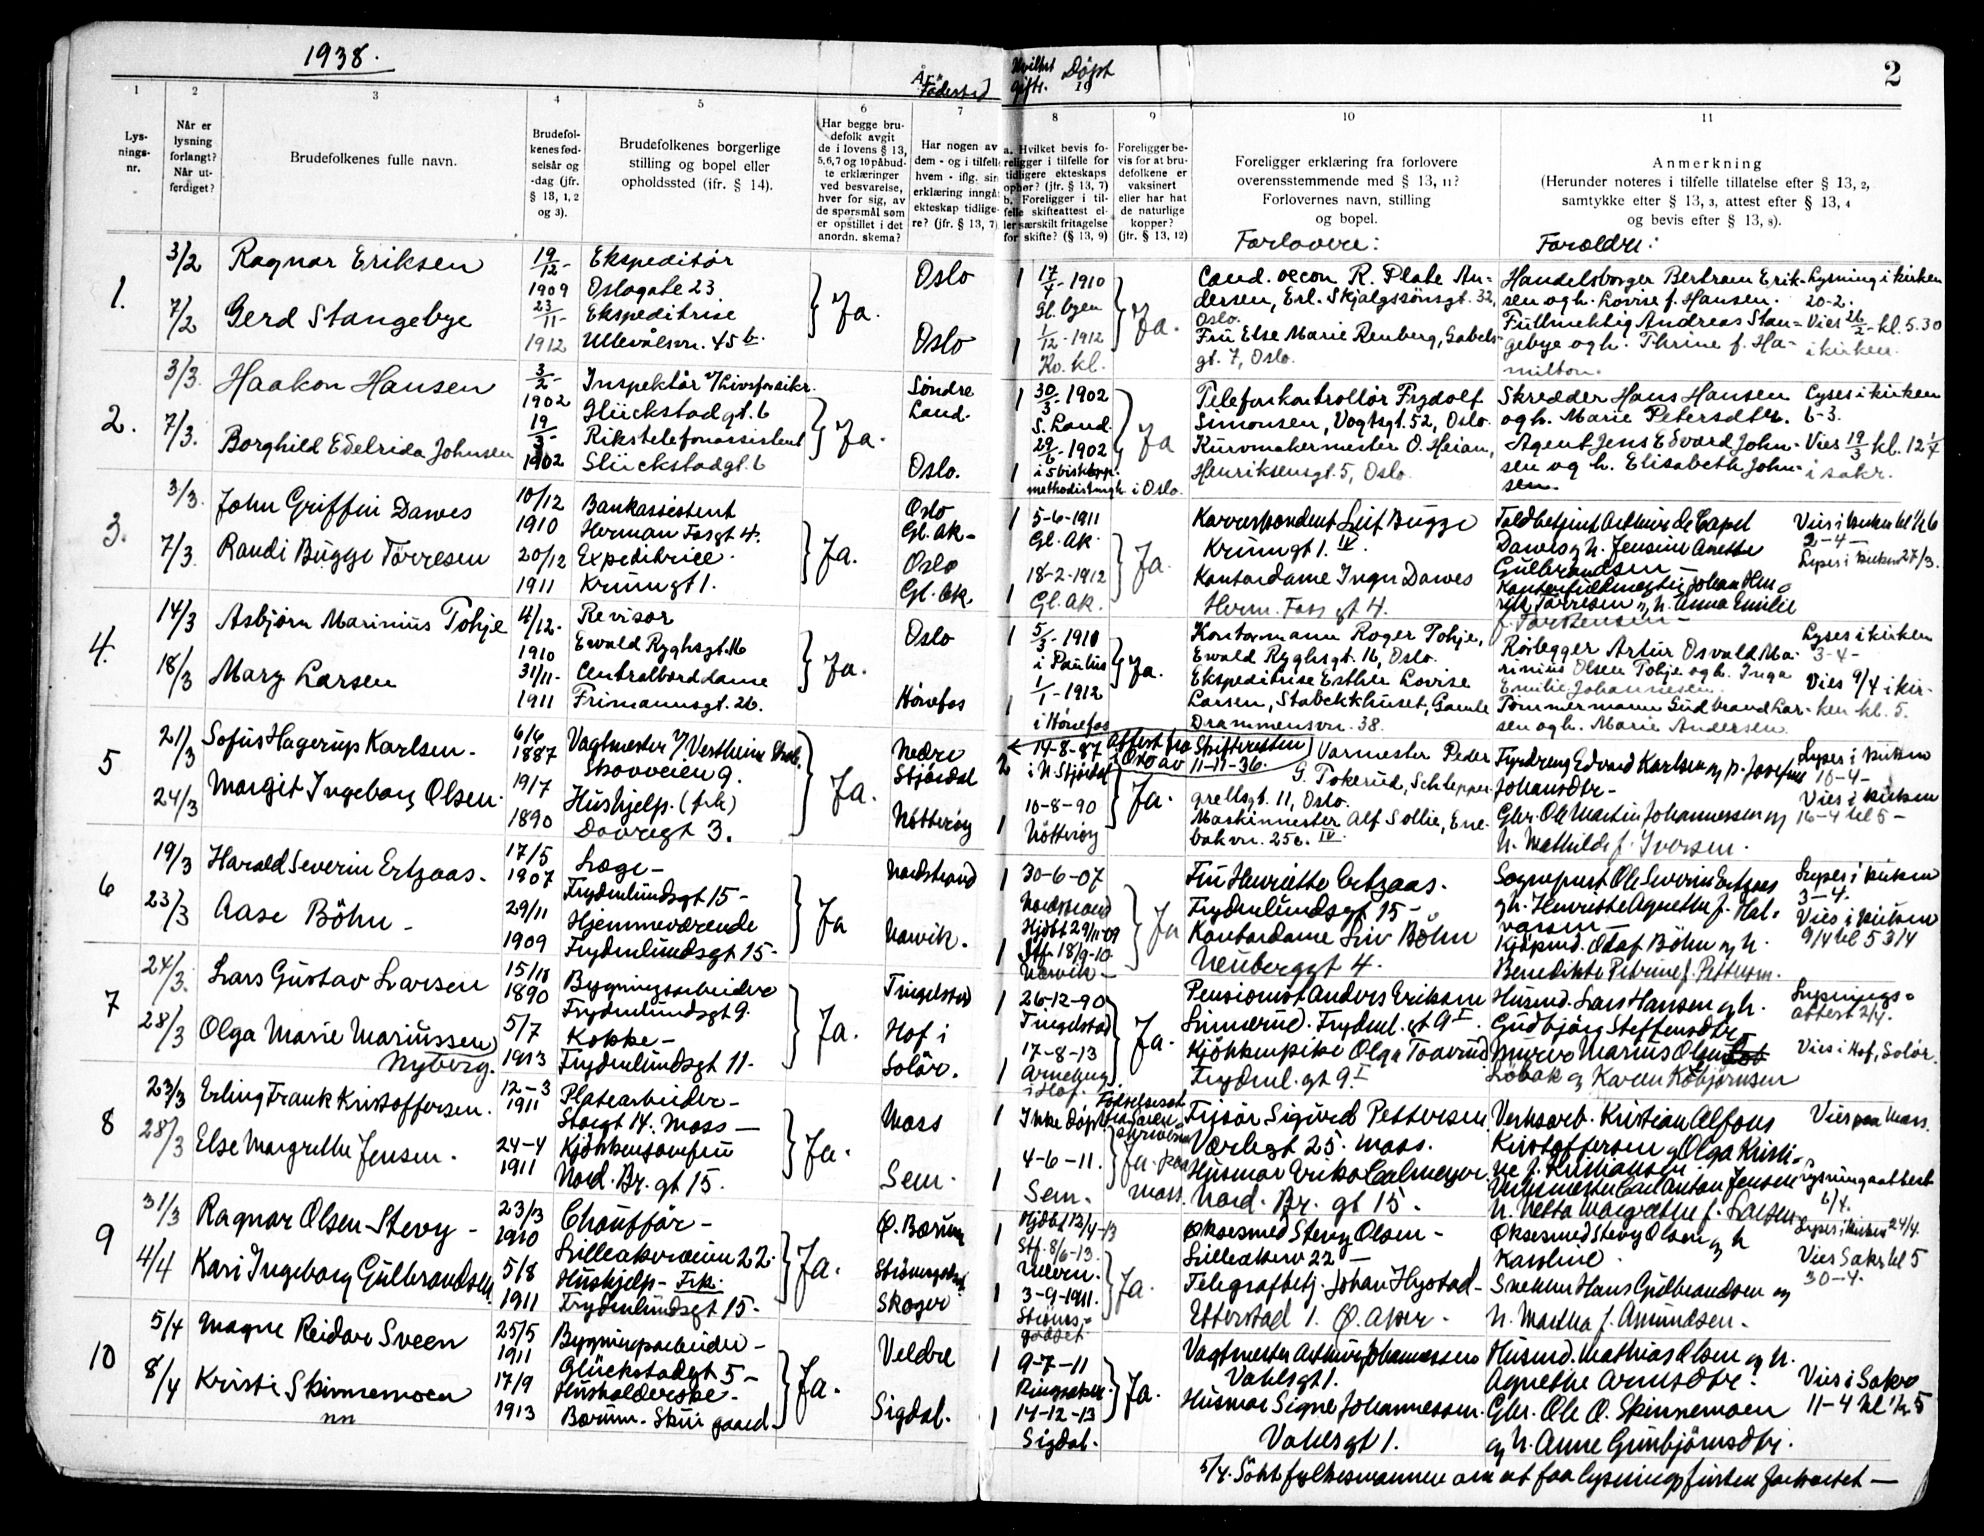 1938.
Födested
Döpt
19
2
1
2
3
4
5
6
7
8
9
10
11
Lys-
nings-
nr.
Når er
lysning
forlangt?
Når ut-
ferdiget?
Brudefolkenes fulle navn.
Brudefol-
kenes fød-
selsår og
-dag (jfr.
§ 13, 1, 2
og 3).
Brudefolkenes borgerlige
stilling og bopel eller
opholdssted (ifr. § 14).
Har begge bru-
defolk avgit
de i lovens § 13,
5,6,7 og 10 påbud-
te erklæringer
ved besvarelse,
hver for sig, av
de spørsmål som
er opstillet i det
anordn. skema?
Har nogen av
dem - og i tilfelle
hvem - iflg. sin
erklæring inngå
ekteskap tidlige-
re? (jfr. § 13, 7)
a. Hvilket bevis fo-
religger i tilfelle for
tidligere ekteskaps
ophør? (jfr. § 13, 7)
b. Foreligger i til-
felle skifteattest el-
ler særskilt fritagelse
for skifte? (§ 13, 9)
Foreligger be-
vis for at bru-
defolkene er
vaksinert
eller har hat
de naturlige
kopper?
(jfr. § 13, 12)
Foreligger erklæring fra forlovere
overensstemmende med § 13, 11?
Forlovernes navn, stilling
og bopel.
Forlovere:
Anmerkning
(Herunder noteres i tilfelle tillatelse efter § 13, 2,
samtykke efter § 13, 3, attest efter § 13, 4
og bevis efter § 13, 8).
Foreldre:
1.
3/2
7/2
Ragnar Eriksen
Gerd Stangebye
19/12-
1909
23/11-
1912
Ekspeditör
Oslogate 23
Ekspeditrise
Ullevålsvn. 45 b.
Ja.
Oslo
Oslo
1
17/4-1910
Gl. byen
1/12-1912
1
Kv. kl.
Ja.
Cand. oecon R. Plate An-
dersen, Erl. Skjalgssönsgt. 32,
Oslo.
Fru Else Marie Renberg, Gabels-
gt. 7, Oslo.
Handelsborger Bertram Erik-
sen og h. Lovise f. Hansen.
Fullmektig Andreas Stan-
gebye og h. Thrine f. Ha-
milton.
Lysning i kirken
20-2.
Vies 26/2 kl. 5.30
i kirken.
2.
3/3.
7/3.
Haakon Hansen
Borghild Edelrida Johnsen
3/2-
1902
19/3-
1902
Inspektör v/Livsforsikr.
Glückstadgt. 6
Rikstelefonassistent
Glückstadgt. 6
Ja.
Söndre
Land.
Oslo.
1
30/3-1902
S. Land.
29/6-1902
1
methodistmgh. i Oslo.
Ja
Telefonkontrollör Frydolf
Simonsen, Vogtsgt. 52, Oslo.
Kurvmakermester O. Heian,
Henriksensgt. 5, Oslo.
Skredder Hans Hansen
og h. Marie Petersdtr.
Agent Jens Edvard John-
sen og h. Elisabeth John-
sen.
Lyses i kirken
6-3.
Vies 19/3 kl. 12 1/4
i sakr.
3.
3/3.
7/3.
John Griffin Dawes
Randi Bugge Törresen
10/12
1910
20/12
1911
Bankassistent
Herman Fossgt 4.
Expeditrice.
Krumgt 1.
Ja.
Oslo
Gl. Ak-
Oslo
Gl. Ak.
1
5-6-1911
Gl. Ak.
18-2-1912
1
Gl. Ak.
Ja.
Korrespondent Leif Bugge
Krumgt 1. IV.
Kontordame Inger Dawes
Herm. Foss gt 4.
Dawes og h. Jensine Anette
Gulbrandsen -
rik Törresen og h. Anna Emilie
f. Torstensen -
2-4-
Lyses i kirken 27/3.
4.
14/3
18/3
Asbjørn Marinius Tohje
Mary Larsen
4/12-
1910
31/11-
1911
Revisor
Ewald Ryghsgt. 16
Centralborddame
Frimannsgt. 26.
Ja.
Oslo
Hönefos
1
5/3-1910
i Paulus
1/1-1912
1
i Hönefos
Ja.
Kontormann Roger Tohje,
Ewald Ryghsgt. 16, Oslo.
Ekspeditrise Esther Lovise
Larsen, Stabekkhuset, Gamle
Drammensvn. 38.
Rörlegger Artur Osvald Ma-
rinius Olsen Tohje og h. Inga
Emilie Johannesen.
Tömmermann Gudbrand Lar-
sen og h. Marie Andersen.
Lyses i kirken
3-4-
Vies 9/4 i kir-
ken kl. 5.
5
21/3
24/3
Sofus Hagerup Karlsen.
Margit Ingeborg Olsen.
6/6
1887
19/7
1890
Skovveien 9.
Hushjelp. (frk)
Dovregt 3.
Ja.
Nedre
Stjördal
Nötteröy
2
14-8-87
i N. Stjördal
10-8-90
1
Nötteröy
Attest fra Skifteretten
Oslo av 11-11-36.
Ja.
Varmester Peder
G. Pokerud, Schlepper-
grellsgt. 11, Oslo.
Maskinmester Alf Sollie, Ene-
bakvn. 256. IV.
Johansdtr-
Gbr. Ole Martin Johannessen og
h. Mathilde f. Iversen.
Lyses i kirken
10-4-
Vies i kirken
16-4 kl 5-
6
19/3
23/3
Harald Severin Ertzaas.
Aase Böhn -
17/5
1907
29/11
1909
Læge-
Frydenlundsgt 15-
Hjemmeværende
Frydenlundsgt 15-
Ja
Nordstrand
Narvik.
1
30-6-07
Nordstrand
Hjdbt 29/11-09
1
Stf. 18/9-10
Narvik-
Ja
Fru Henriette Ertzaas.
Frydenlundsgt 15-
Kontordame Liv Böhn
Neuberggt 4.
Sogneprest Ole Severin Ertzaas
og h. Henriette Agnethe f. Hal-
vorsen-
Kjöpmd. Olaf Böhn og h.
Benedikte Petrine f. Petterson.
Lyses i kirken
3-4.
Vies i kirken
9/4 kl 5 3/4
7
24/3.
28/3
Lars Gustav Larsen
Olga Marie Mariussen
Nyberg.
15/10
1890
5/7
1913
Bygningsarbeider
Frydenlundsgt 9.
Kokke-
Frydenlundsgt 11.
Ja.
Tingelstad
Hof i
Solör.
1
26-12-90
Tingelstad
17-8-13
1
Arneberg
i Hof.
Ja.
Pensionist Anders Eriksen
Linnerud. Frydenl. gt 9 I.
Kjökkenpike Olga Toverud
Frydenl. gt 9 I
Husmd. Lars Hansen og h.
Gudbjörg Steffensdtr
Murer Marius Olsen
Löbak og Karen Kolbjörnsen
Lysnings-
attest 2/4.
Vies i Hof, Solör.
8
23/3
28/3
Erling Frank Kristoffersen.
Else Margrethe Jensen.
12-3
1911
24-4
1911
Platearbeider-
Storgt 14. Moss-
Kjökkenjomfru
Nord. Br. gt 15.
Ja.
Moss
Sem.
1
Ikke döpt
4-6-11.
1
Sem.
Födselsatt.
Moss.
Frisör Sigurd Pettersen
Værlegt 25. Moss.
Nord. Br. gt 15.
Verksarb. Kristian Alfons
Kristoffersen og Olga Kristi-
ne f. Kristiansen.
h. Netta Margrethe f. Larsen
Vies paa Moss.
Lysningsattest
6/4.
9
31/3
4/4
Ragnar Olsen Stevy -
Kari Ingeborg Gulbrandsen.
23/3
1910
5/8
1911
Chaufför-
Lilleakerveien 22.
Hushjelp- Frk.
Frydenlundsgt 15-
Ja.
Ø. Bærum
Skoger
1
Hjdbt 13/4-13
Stf. 8/6-13.
Ullern.
1
3-9-1911.
Ströms-
godset
Ja.
Öksesmed Stevy Olsen-
Lilleakerv 22-
Telegrafbetj. Johan Hystad-
Etterstad 1. Ø. Aker-
Öksesmed Stevy Olsen og h
Karoline-
Snekker Hans Gulbrandsen og
h. Martha f. Amundsen.
Lyses i kirken 24/4.
Vies Sakr kl 5
30-4.
10
5/4
8/4
Magne Reidar Sveen
Kristi Skinnemoen
nn
25/5
1911
17/9
1913
Bygningsarbeider-
Glückstadgt 5-
Husholderske.
Bærum. Skui gaard.
Ja.
Veldre
Sigdal.
1
9-7-11
Ringsaker.
14-12-13
1
Sigdal.
Ja.
Vagtmester Arthur Johannessen
Vahlsgt 1.
Husmor Signe Johannessen.
Vahlsgt 1.
Husmd. Mathias Olsen og h.
Agnethe Arntsdtr.
Gbr. Ole O. Skinnemoen
og h. Anne Gunbjörnsdtr.
Vies i Sakr
11-4 kl 1/2 5
5/4. Sökt fylkesmannen om at faa lysningsfristen forkortet-